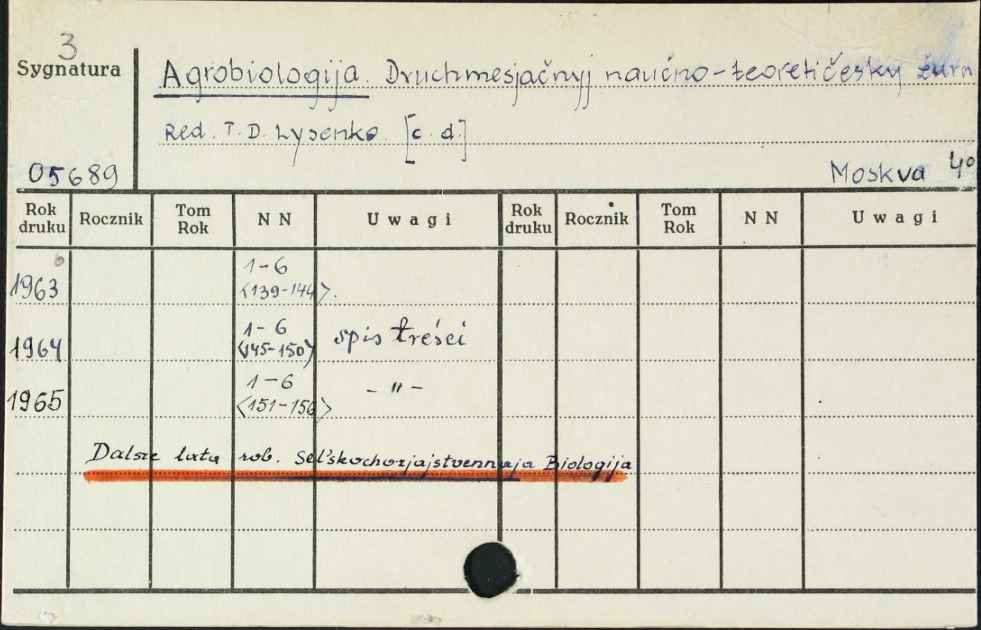 3
Sygnatura
Agrobiologija. Druchmesjačnyj naučno-teoretičesky žurn
Red. T. D. Lysenko. [c. d.]
05689
Moskva 4°
Rok druku Rocznik Tom Rok N N Uwagi Rok druku Rocznik Tom Rok N N Uwagi
1963 1-6
<139-144>.
1964 1-6 spis treści
<145-150>
1965 1-6 - " -
<151-156>
Dalsze lata rob. Sel'skochozjajstvennaja Biologija